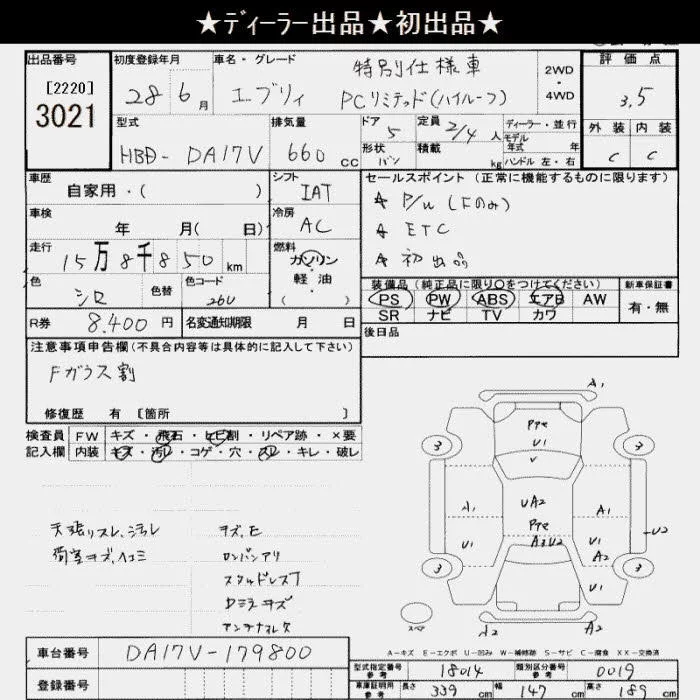 ★ディーラー出品★初出品★
出品番号
[2220]
3021
初度登録年月
28 6月
車名・グレード
特別仕様車
エブリィ PCリミテッド(ハイルーフ)
2WD
・
4WD
評価点
3.5
外装 内装
C C
型式
HBD- DA17V
排気量
660 cc
ドア
5
形状
バン
定員
2/4人
積載
kg
ディーラー・並行
モデル年式 年
ハンドル 左・右
車歴
自家用・( )
車検
年 月( 日)
走行
15万8千850 km
色
シロ
色替
色コード
26U
R券
8,400円
名変通知期限 月 日
シフト
IAT
冷房
AC
燃料
ガソリン
・
軽油
( )
セールスポイント(正常に機能するものに限ります)
★ P/W (Fのみ)
★ ETC
★ 初出品
装備品(純正品に限り○をつけてください)
PS PW ABS エアB AW
SR ナビ TV カワ
新車保証書
有・無
後日品
注意事項申告欄(不具合内容等は具体的に記入して下さい)
Fガラス割
修復歴 有 [箇所 ]
検査員
記入欄
FW キズ・飛石・ヒビ割・リペア跡・×要
内装 キズ・汚レ・コゲ・穴・スレ・キレ・破レ
天張リスレ、汚レ
荷室キズ、ヘコミ
キズ、E
ロンバンアリ
スタッドレスT
Dミラーキズ
アンテナレス
A1
3 3
U1
V
A1 UA2 A1
U2
U1 A3U2 U1
A2
3 3
U1
スペア
A2 A2
A-キズ E-エクボ U-凹み W-補修跡 S-サビ C-腐食 XX-交換済
車台番号 DA17V-179800
登録番号
型式指定番号
参考
18014
類別区分番号
参考
0019
車庫証明用
参考
長さ 339 cm 幅 147 cm 高さ 189 cm